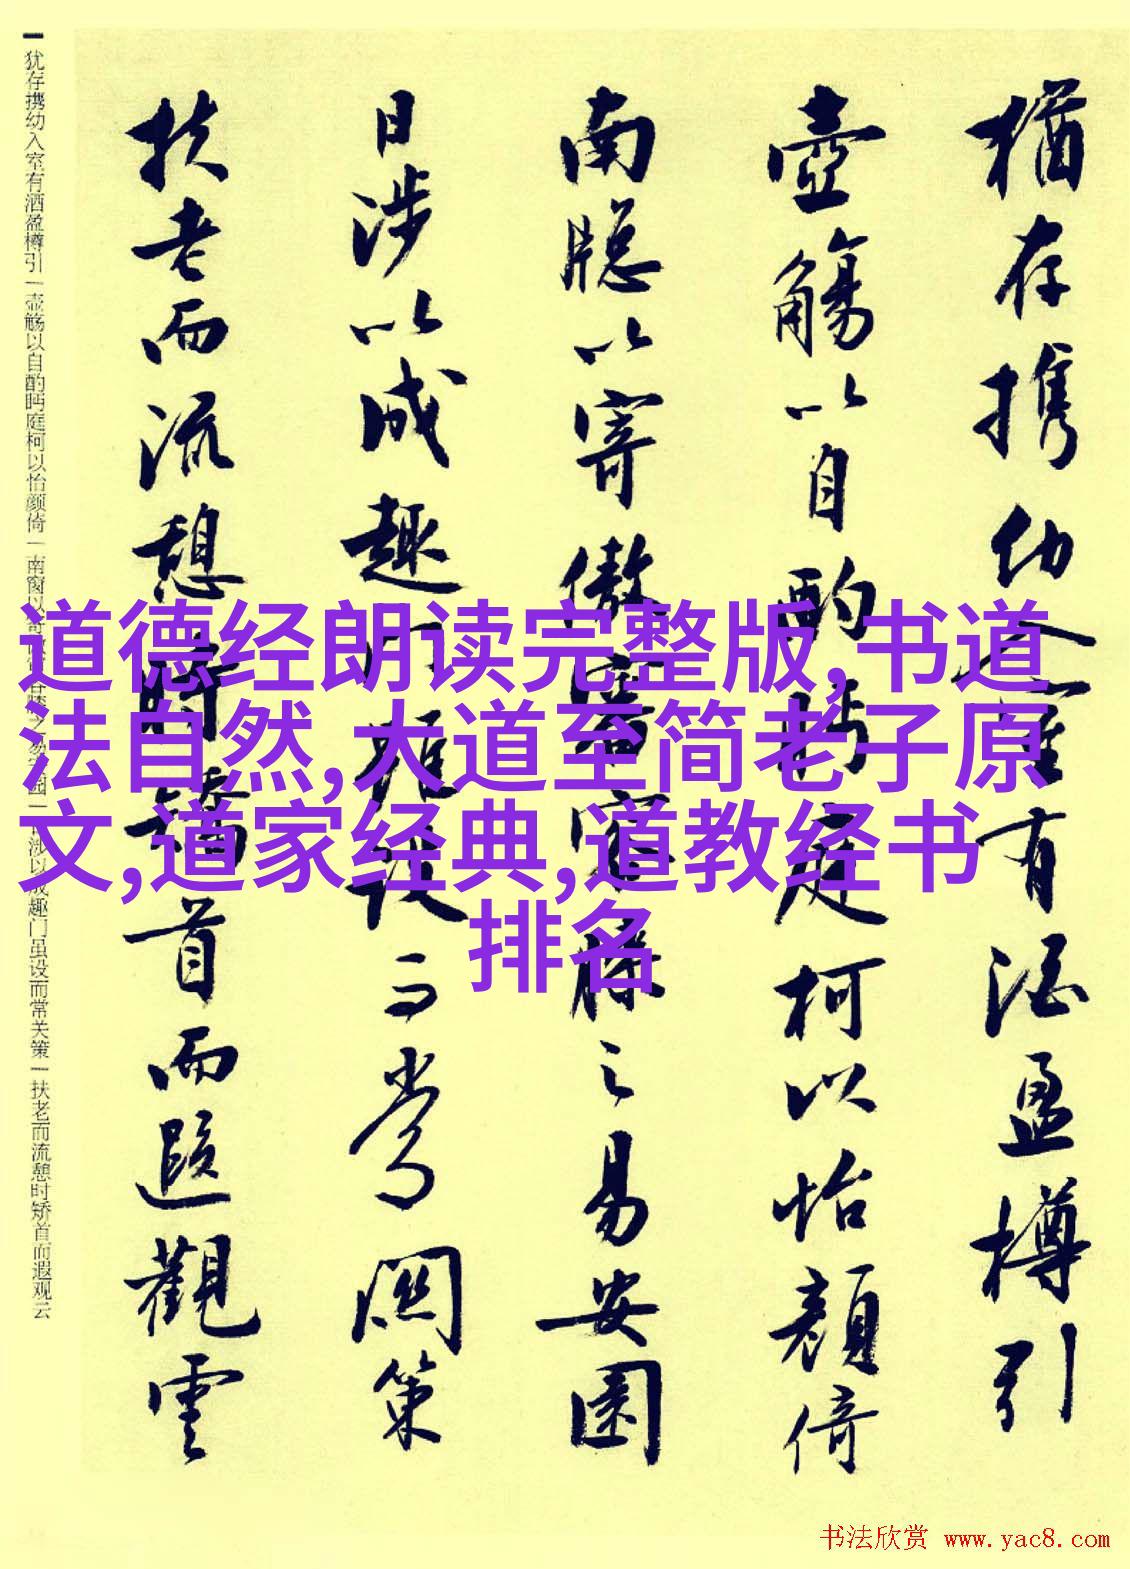 犹存携幼入室有酒盈樽引
壶觞以自酌眄庭柯以怡颜倚
扶老而流憩时矫首而遐观云
猶存携幼入室有酒盈樽引
壺觴以自酌眄庭柯以怡顏倚
南牕以寄傲審容膝之易安園
日涉以成趣門雖設而常關策
扶老而流憩時矯首而遐觀雲
道德经朗读完整版,书道
法自然,大道至简老子原
文,道家经典,道教经书
排名
书法欣赏 www.yac8.com